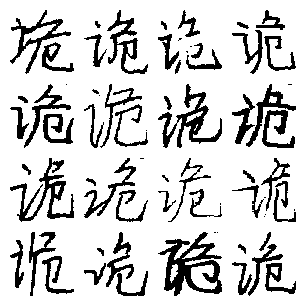 诡诡诡诡
诡诡诡诡
诡诡诡诡
诡诡诡诡